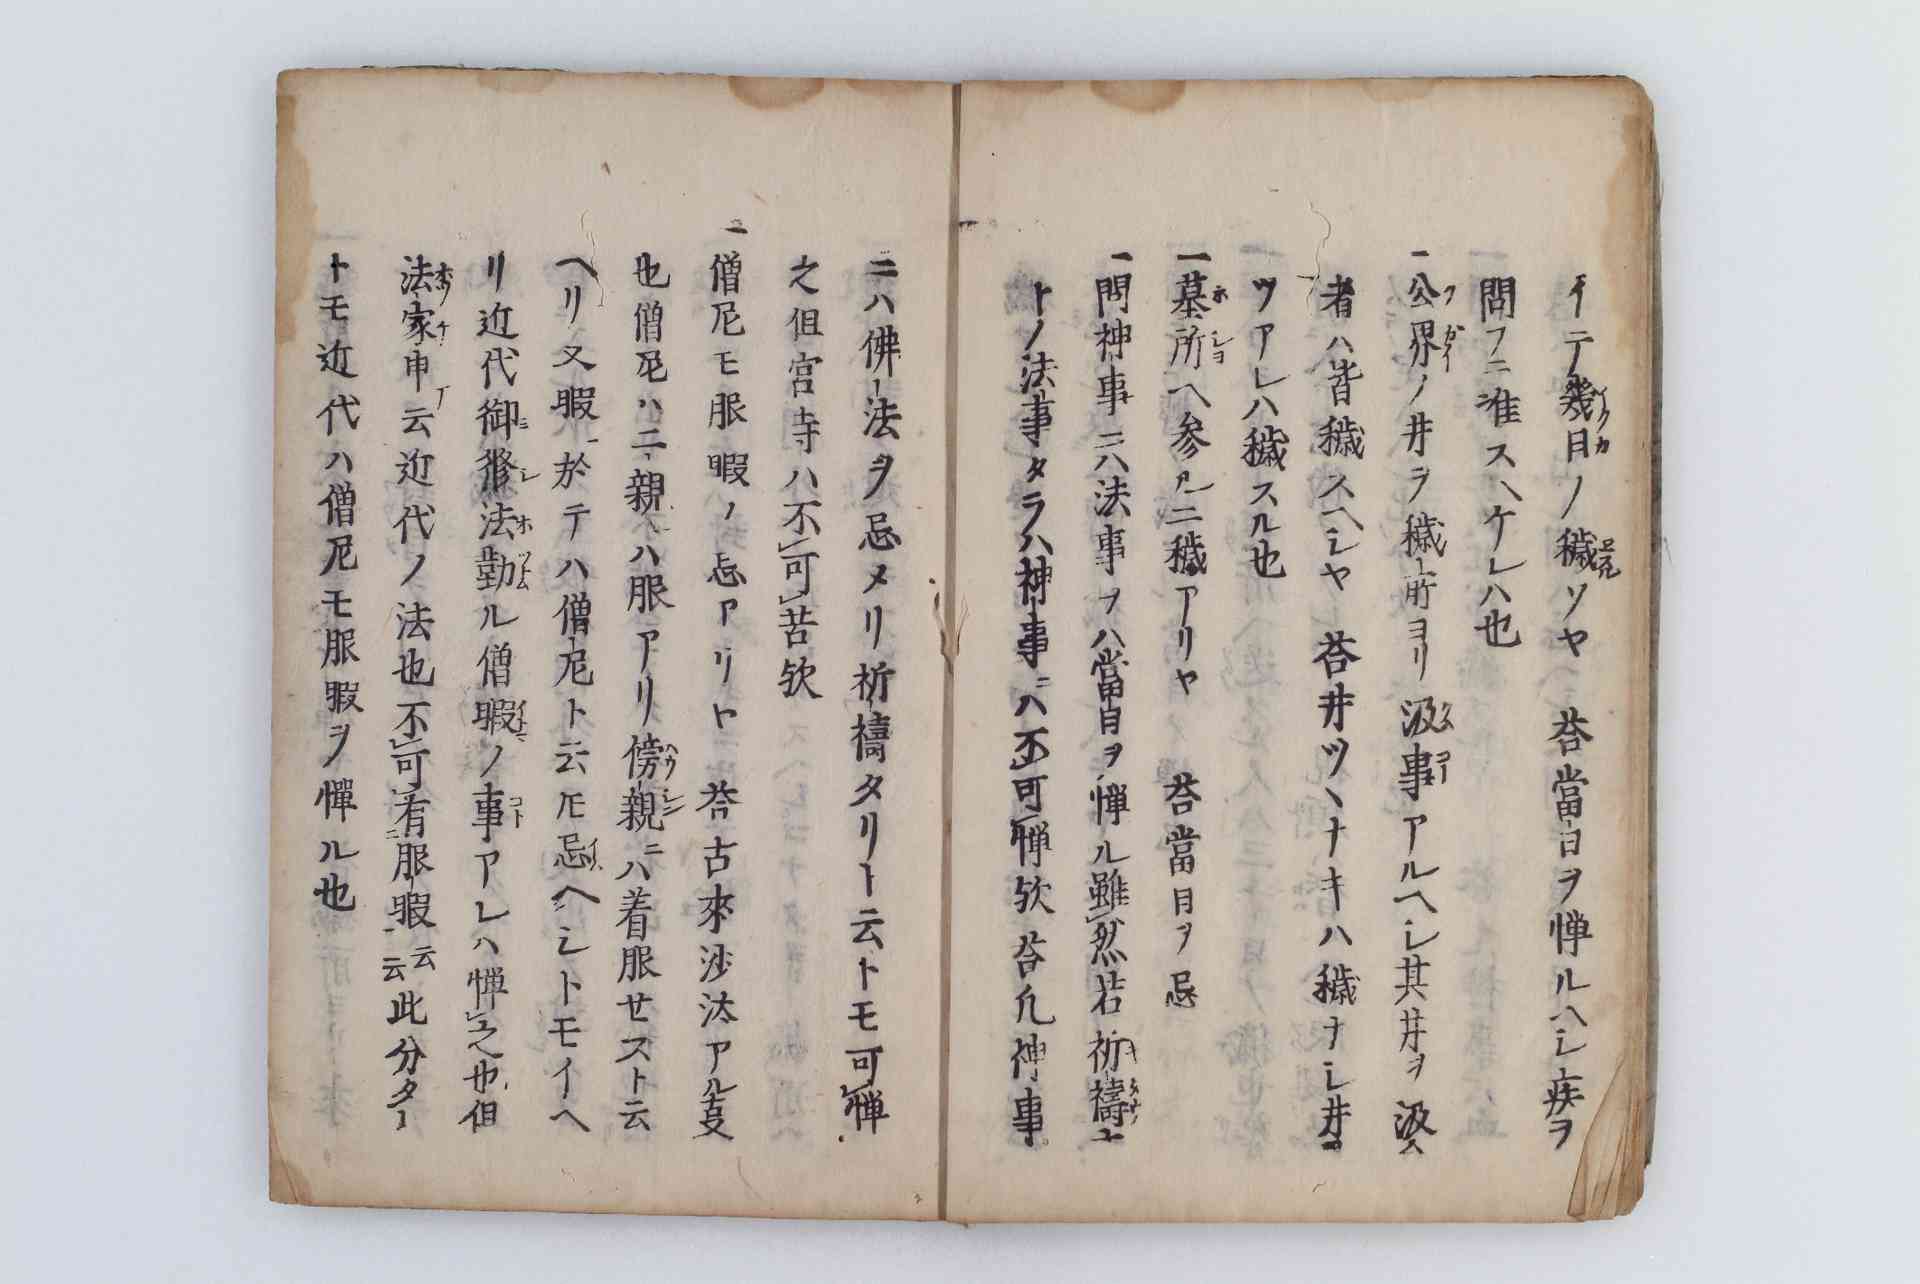 イテ幾日ノ穢ソヤ 荅當日ヲ憚ルヘシ疾ヲ
問フニ准スヘケレハ也
一公界ノ井ヲ穢所ヨリ汲事アルヘシ其井ヲ汲
者ハ皆穢スヘシヤ 荅井ツヽナキハ穢ナシ井
ツアレハ穢スル也
一墓所ヘ参ルニ穢アリヤ 荅當日ヲ忌
一問神事ニハ法事ヲハ當日ヲ憚ル雖然若祈禱ナ
トノ法事タラハ神事ニハ不可憚欤荅凡神事
ニハ佛法ヲ忌メリ祈禱タリト云トモ可憚
之但宮寺ハ不可苦欤
一僧尼モ服暇ノ忌アリヤ 荅古來沙汰アル支
也僧尼ハ二親ハ服アリ傍親ニハ着服セスト云
ヘリ又暇於テハ僧尼ト云𪜈忌ヘシトモイヘ
リ近代御修法勤ル僧暇ノ事アレハ憚之也但
法家申云近代ノ法也不可有服暇云云此分ター
トモ近代ハ僧尼モ服暇ヲ憚ル也